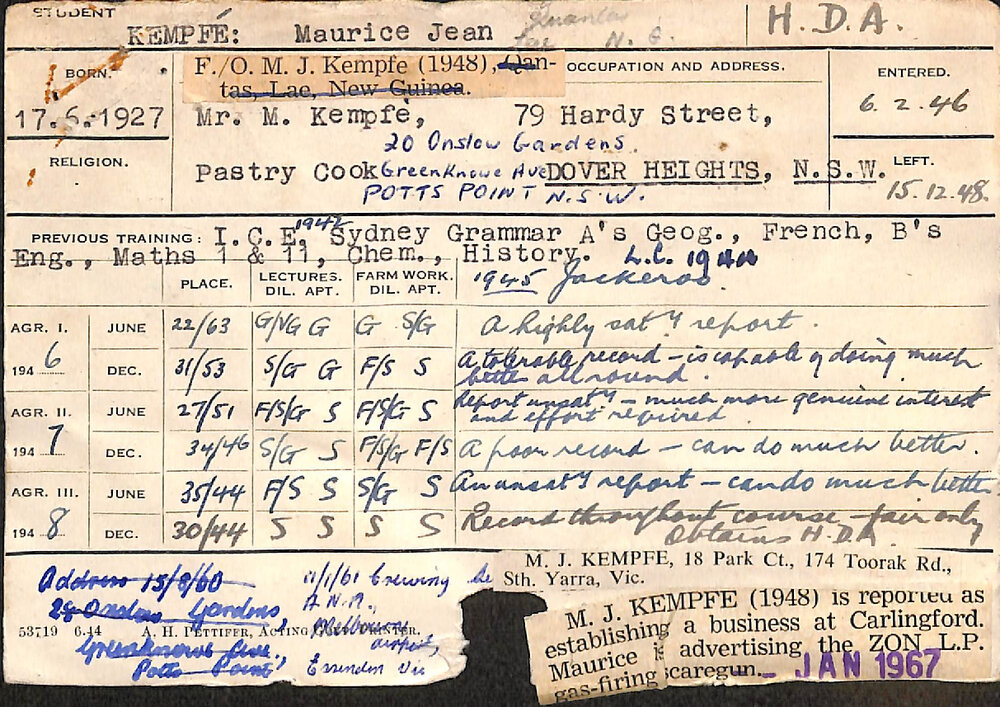 STUDENT
KEMPFÉ: Maurice Jean
Quantas
Lae N. G.
H.D.A.
BORN.
F./O. M. J. Kempfe (1948), Qan-
tas, Lae, New Guinea.
OCCUPATION AND ADDRESS.
ENTERED.
17.6.1927
Mr. M. Kempfe, 79 Hardy Street,
6.2.46
20 Onslow Gardens
RELIGION.
Pastry Cook Greenknowe Ave DOVER HEIGHTS, N.S.W.
LEFT.
POTTS POINT N.S.W.
15.12.48.
1942
PREVIOUS TRAINING: I.C.E, Sydney Grammar A's Geog., French, B's
Eng., Maths 1 & 11, Chem., History. L.C. 1944
PLACE. LECTURES. DIL. APT. FARM WORK. DIL. APT. 1945 Jackeroo.
AGR. I. JUNE 22/63 G/VG G G S/G A highly sat'y report.
194 6 DEC. 31/53 S/G G F/S S A tolerable record - is capable of doing much
better all round.
AGR. II. JUNE 27/51 F/S/G S F/S/G S Report unsat'y - much more genuine interest
and effort required
194 7 DEC. 34/46 S/G S F/S/G F/S A poor record - can do much better.
AGR. III. JUNE 35/44 F/S S S/G S An unsat'y report - can do much better
194 8 DEC. 30/44 S S S S Record throughout course - fair only
Obtains H.D.A.
M. J. KEMPFE, 18 Park Ct., 174 Toorak Rd.,
Sth. Yarra, Vic.
Address 15/8/60
28 Onslow Gardens
53719 6.44 A. H. PETTIFER, ACTING GOVT. PRINTER.
Greenknowe Ave.,
Potts Point
11/1/61 Crewing
A.N.A.,
Melbourne
airport,
Essendon Vic
M. J. KEMPFE (1948) is reported as
establishing a business at Carlingford.
Maurice is advertising the ZON L.P.
gas-firing scaregun.
JAN 1967